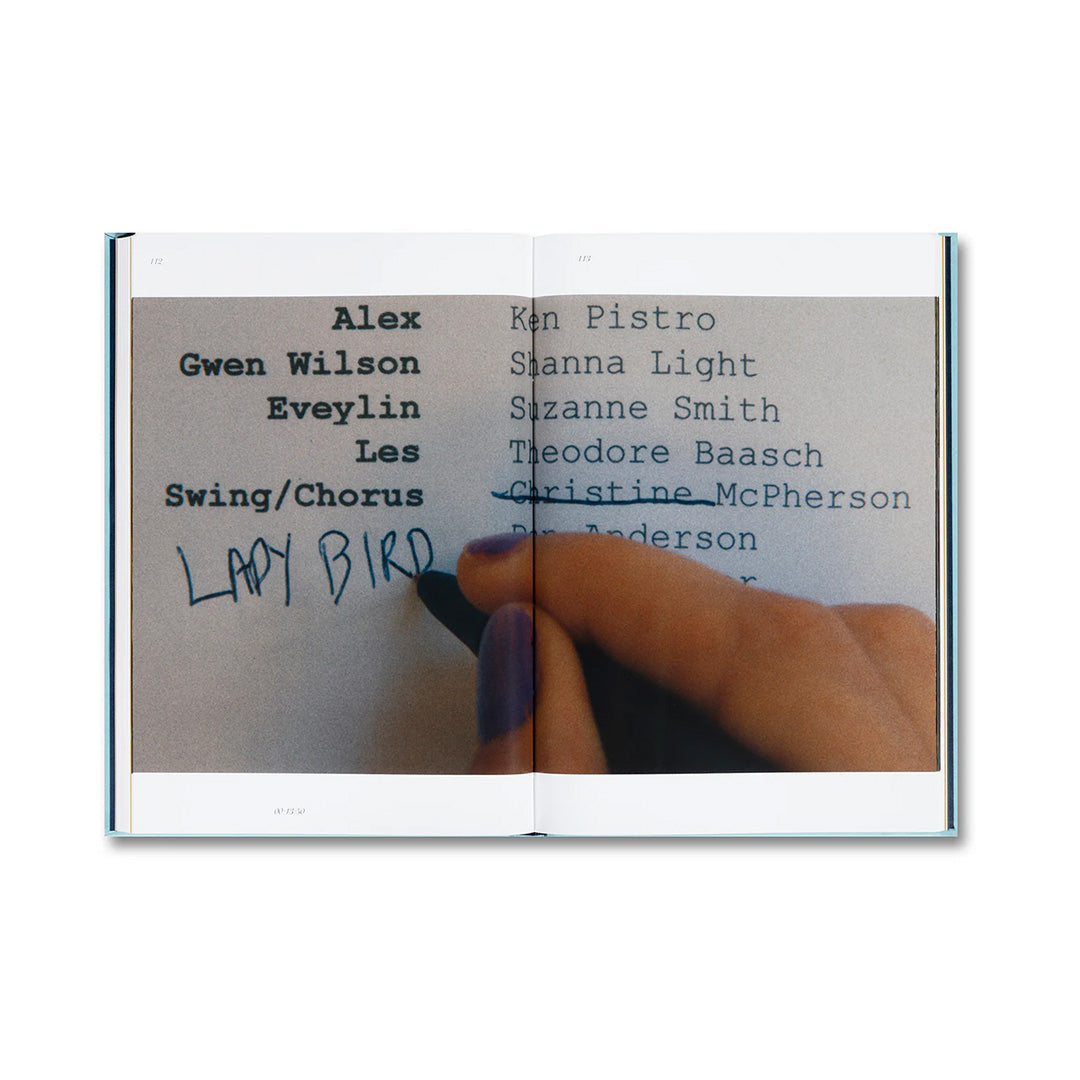 112
113
Alex Ken Pistro
Gwen Wilson Shanna Light
Eveylin Suzanne Smith
Les Theodore Baasch
Swing/Chorus Christine McPherson
LADY BIRD Anderson
00:13:30